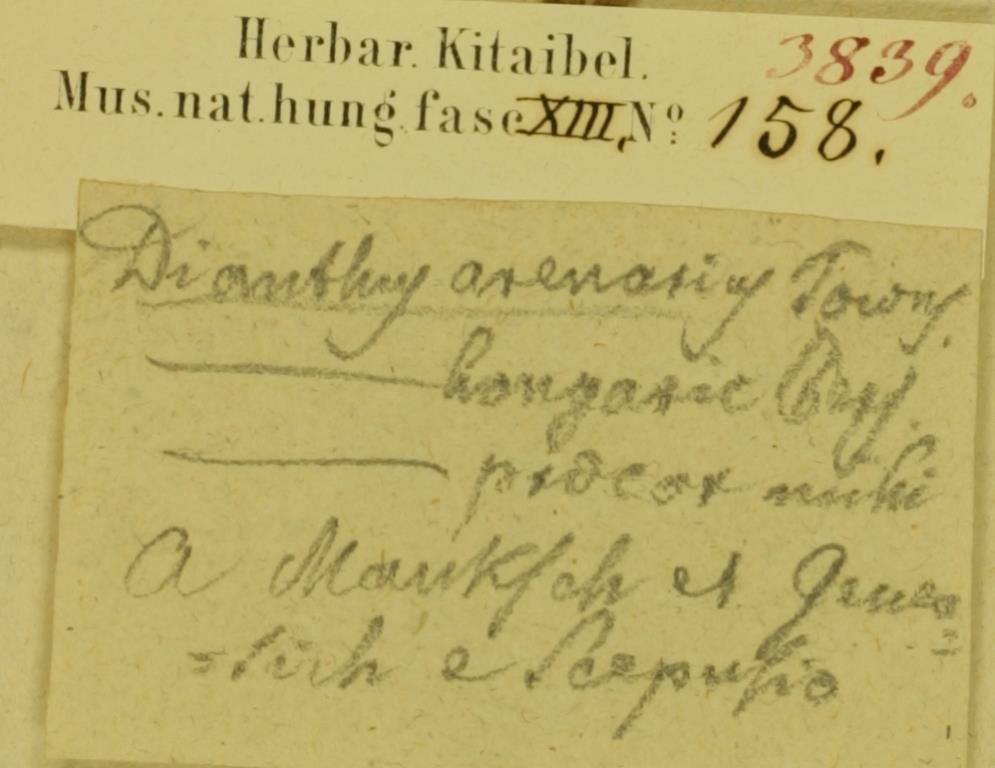 Herbar. Kitaibel. 3839.
Mus. nat. hung. fasc XIII. No: 158.
Dianthus arenarius Towns.
——— hungaric
——— procer mihi
a Mauksch et Gener=
=sich e Scepusio